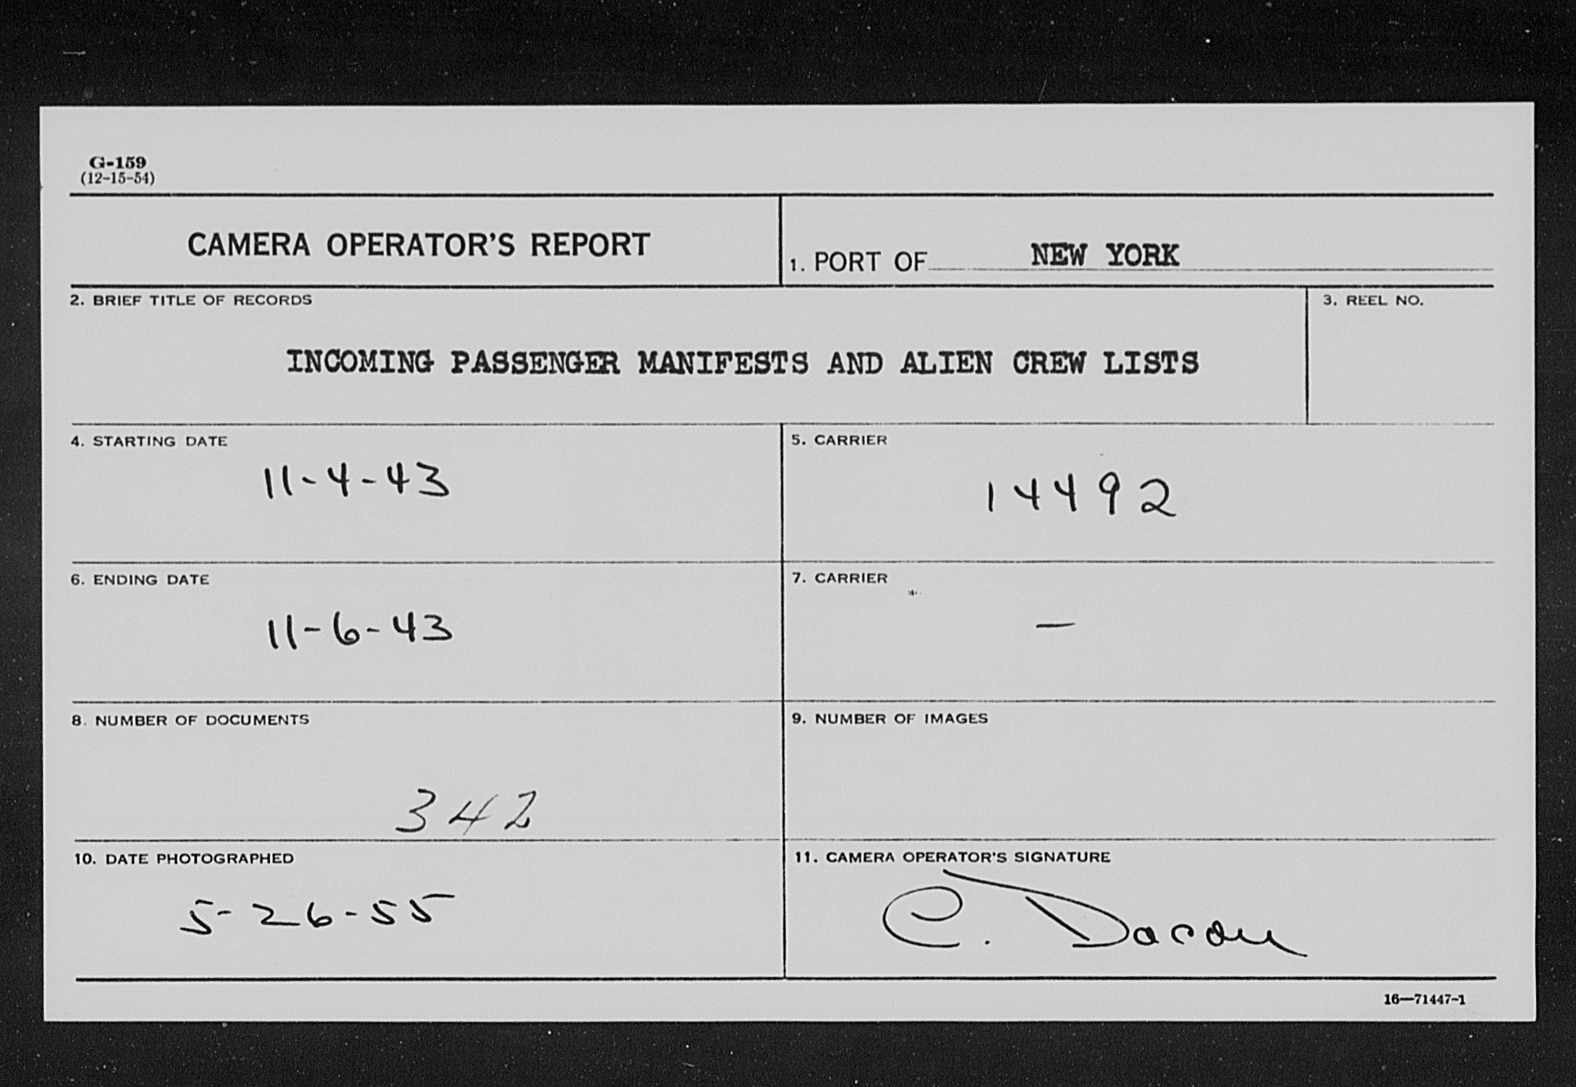 G-159
(12-15-54)
CAMERA OPERATOR'S REPORT
1. PORT OF NEW YORK
2. BRIEF TITLE OF RECORDS
3. REEL NO.
INCOMING PASSENGER MANIFESTS AND ALIEN CREW LISTS
4. STARTING DATE
11-4-43
5. CARRIER
14492
6. ENDING DATE
11-6-43
7. CARRIER
—
8. NUMBER OF DOCUMENTS
342
9. NUMBER OF IMAGES
10. DATE PHOTOGRAPHED
5-26-55
11. CAMERA OPERATOR'S SIGNATURE
C.
16—71447-1